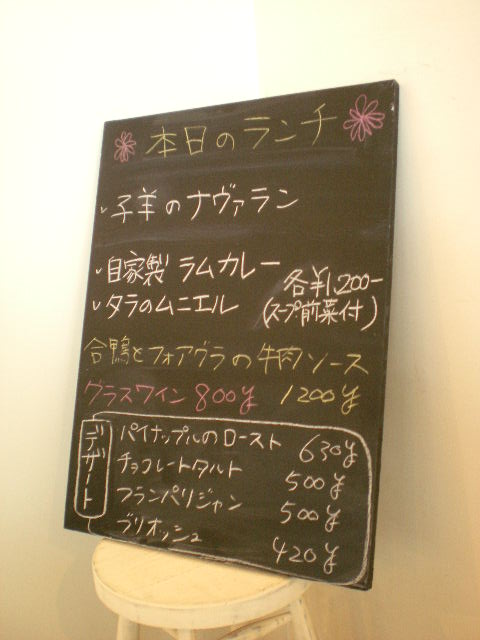 本日のランチ
子羊のナヴァラン
自家製 ラムカレー
タラのムニエル
各¥1,200-
(スープ前菜付)
合鴨とフォアグラの牛肉ソース
1200¥
グラスワイン 800¥
デザート
パイナップルのロースト 630¥
チョコレートタルト 500¥
フランパリジャン 500¥
ブリオッシュ 420¥